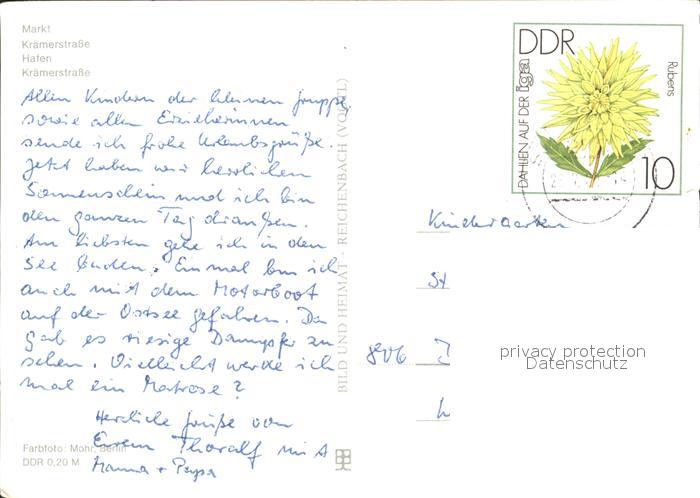 Markt
Krämerstraße
Hafen
Krämerstraße
Allen Kindern der kleinen Gruppe,
sowie allen Erzieherinnen
sende ich frohe Urlaubsgrüße.
Jetzt haben wir herrlichen
Sonnenschein und ich bin
den ganzen Tag draußen.
Am liebsten gehe ich in den
See baden. Einmal bin ich
auch mit dem Motorboot
auf der Ostsee gefahren. Da
gab es riesige Dampfer zu
sehen. Vielleicht werde ich
mal ein Matrose?
Herzliche Grüße von
Eurem Thoralf mit
Mama + Papa
Farbfoto: Mohr, Berlin
DDR 0,20 M
BILD UND HEIMAT · REICHENBACH (VOGTL)
DDR
DAHLIEN AUF DER iga
Rubens
10
Kindergarten
806
privacy protection
Datenschutz